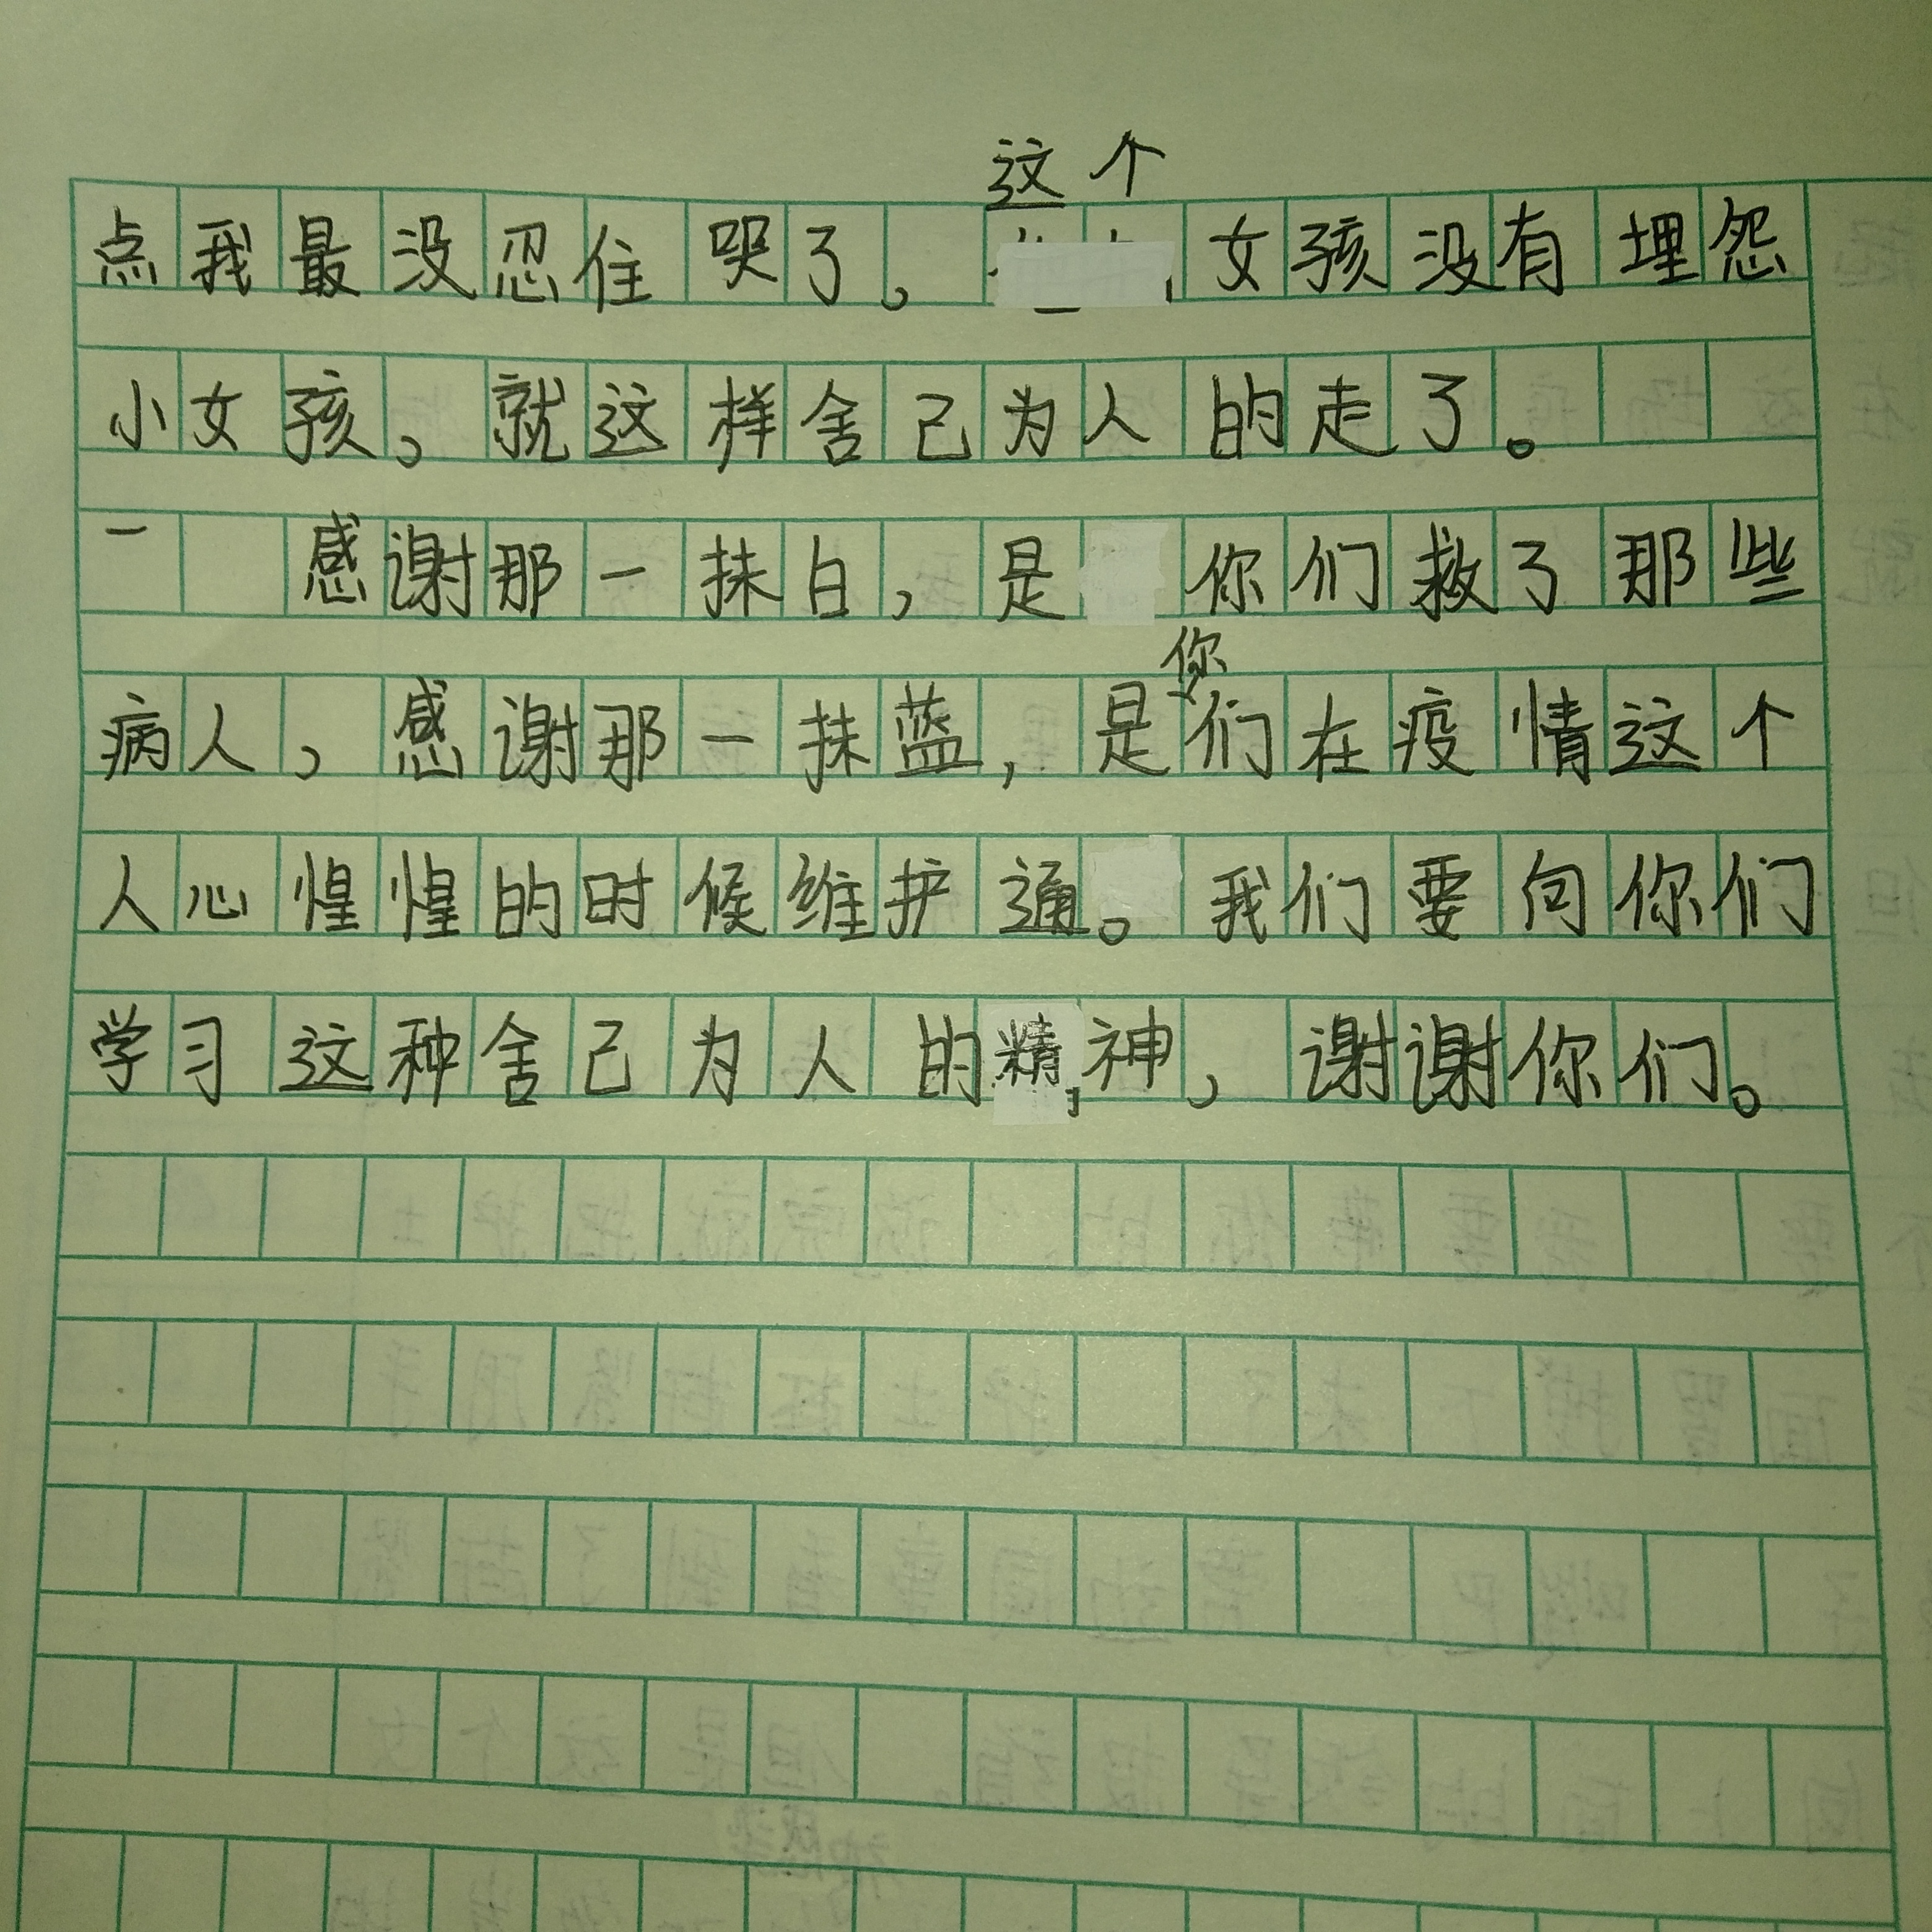 点我最没忍住哭了，这个女孩没有埋怨
小女孩，就这样舍己为人的走了。
感谢那一抹白，是你们救了那些
病人，感谢那一抹蓝，是你们在疫情这个
人心惶惶的时候维护通。我们要向你们
学习这种舍己为人的精神，谢谢你们。